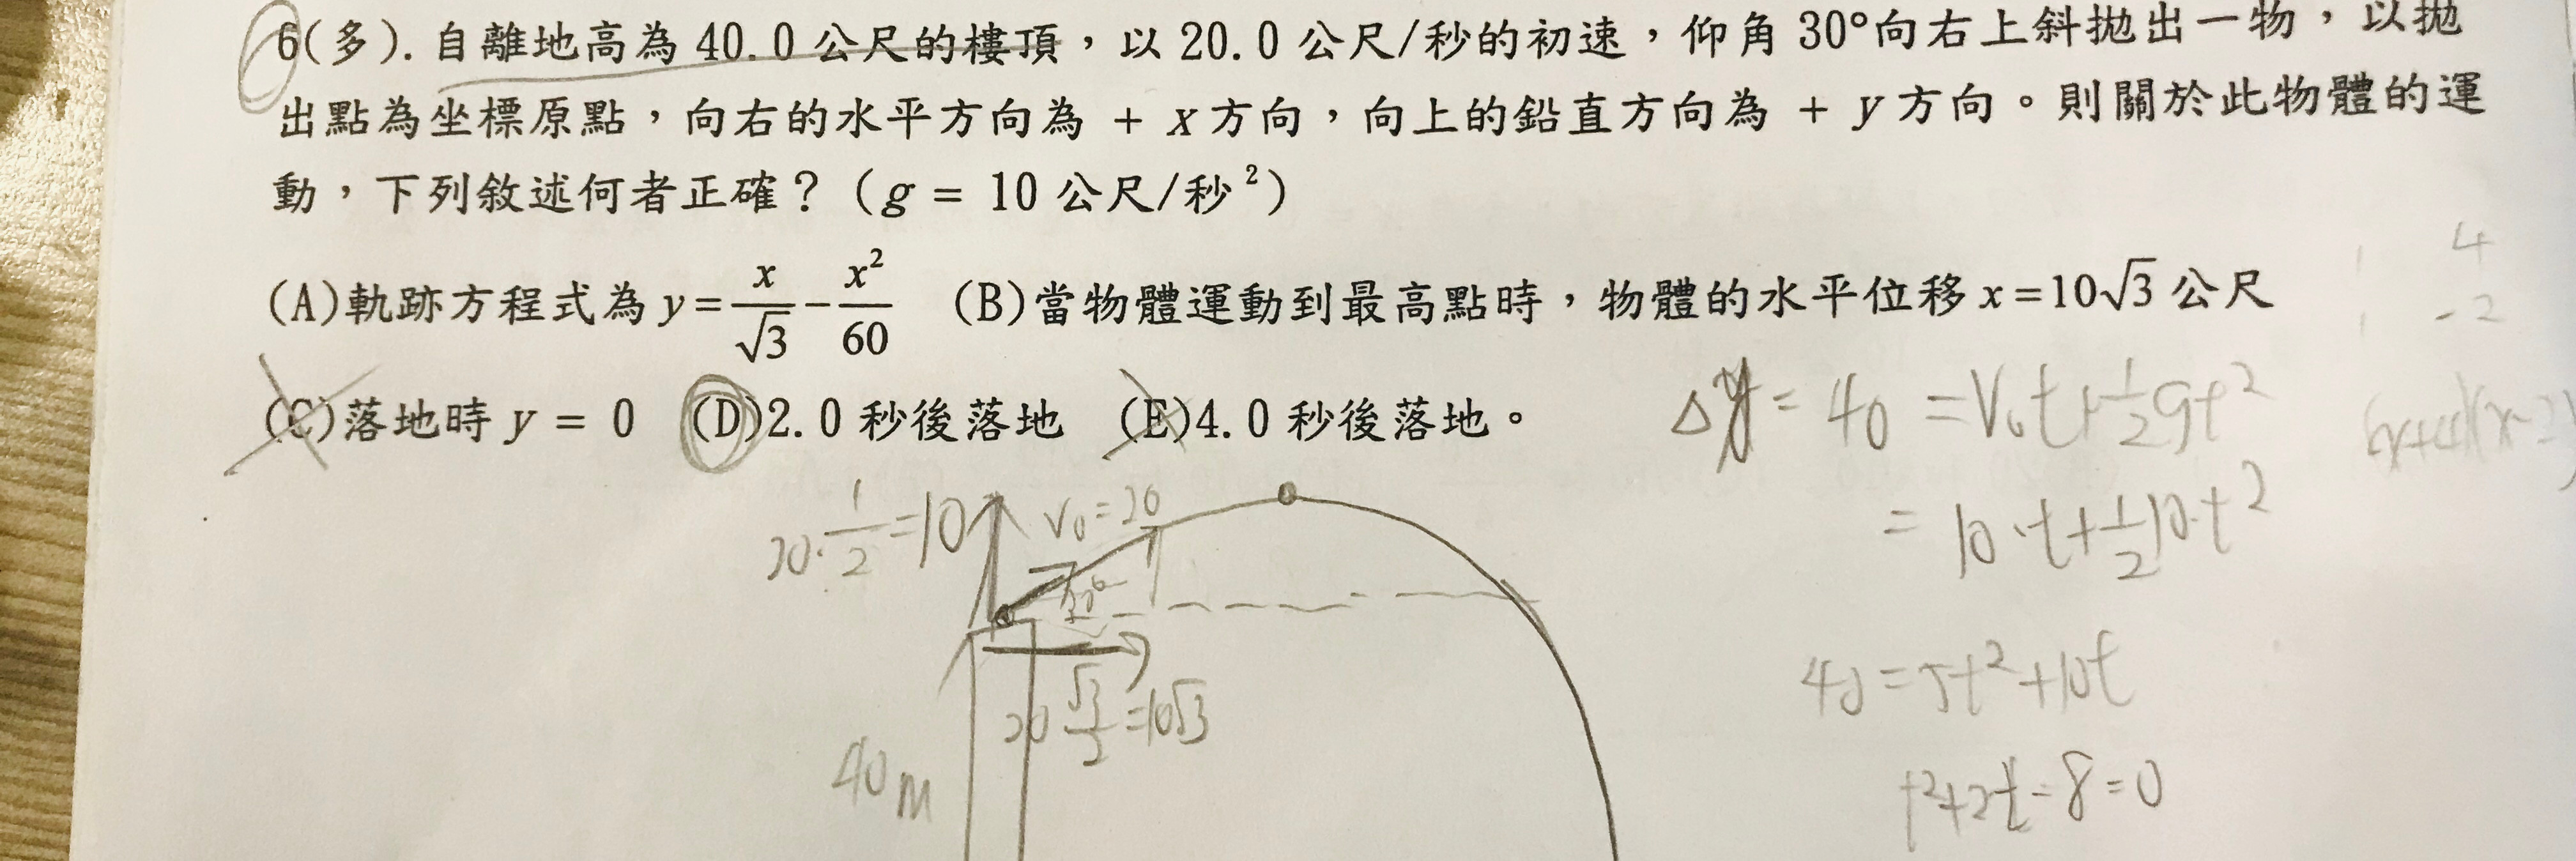 6(多). 自離地高為 40.0 公尺的樓頂，以 20.0 公尺/秒的初速，仰角 30°向右上斜拋出一物，以拋
出點為坐標原點，向右的水平方向為 + x 方向，向上的鉛直方向為 + y 方向。則關於此物體的運
動，下列敘述何者正確？（g = 10 公尺/秒²）
(A)軌跡方程式為 y=x/√3−x²/60 (B)當物體運動到最高點時，物體的水平位移 x=10√3 公尺
(C)落地時 y = 0 (D)2.0 秒後落地 (E)4.0 秒後落地。
4
-2
Δy = 40 = V₀t+½gt²
(x+4)(x-2)
20·½=10
V₀=20
= 10·t+½10·t²
30°
20 √3/2=10√3
40=5t²+10t
40m
t²+2t-8=0